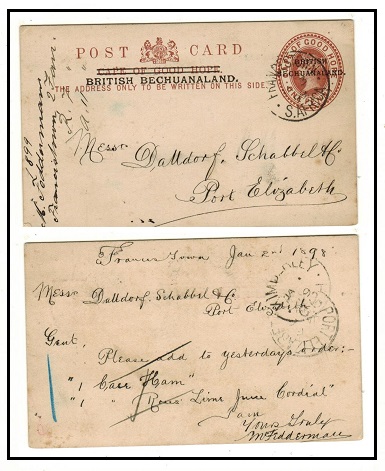 POST CARD
CAPE OF GOOD HOPE.
BRITISH BECHUANALAND.
THE ADDRESS ONLY TO BE WRITTEN ON THIS SIDE.
OF GOOD HO
BRITISH
BECHUANALAND.
S. AFRICA
Messrs Dalldorf. Schabbel & Co
Port Elizabeth
Francistown 2 Jan.
Francis Town Jan 2nd 1898
Messrs Dalldorf. Schabbel & Co
Port Elizabeth
Gent.
Please add to yesterdays order:-
" 1 Case Ham"
" 1 " Roses Lime Juice Cordial"
I am
Yours truly
McFedderman
KIMBERLEY